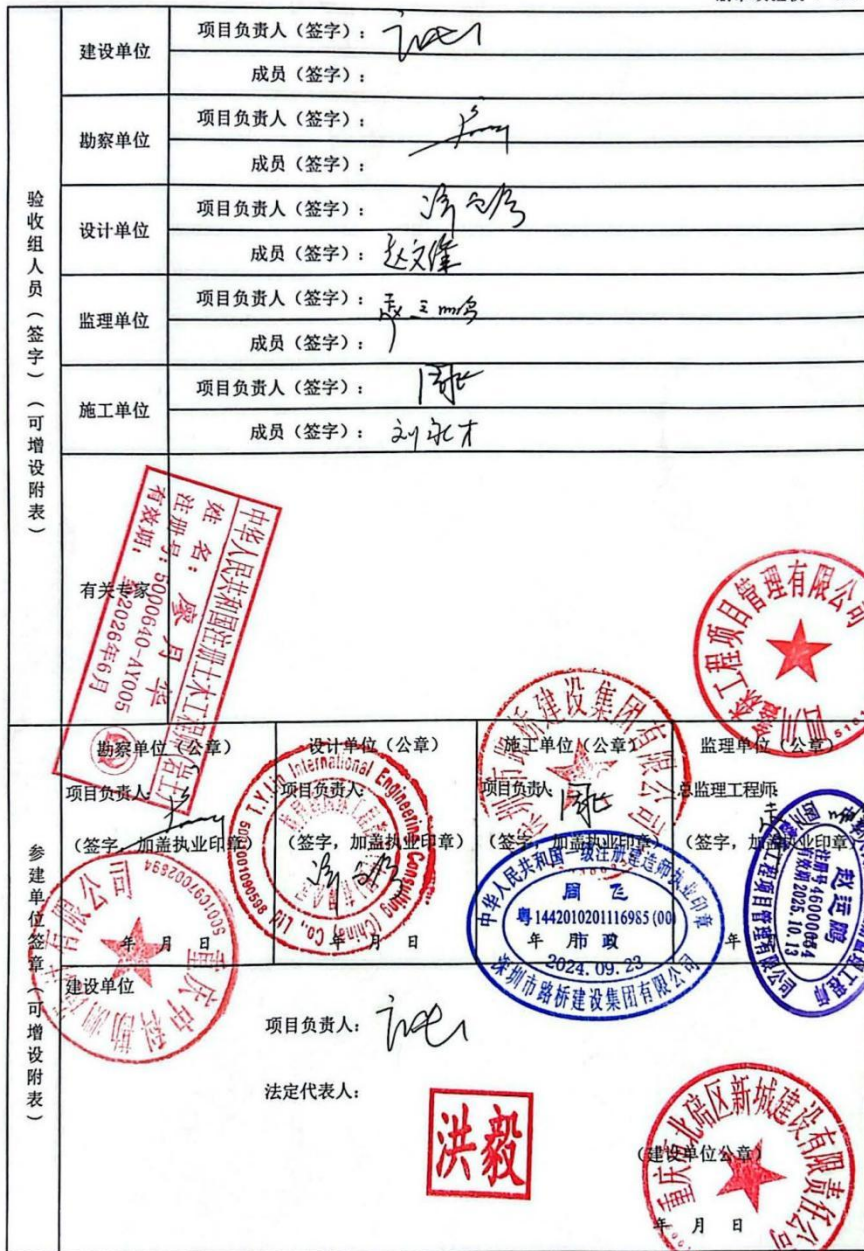 验收组人员（签字）（可增设附表）
建设单位
项目负责人（签字）：
成员（签字）：
勘察单位
项目负责人（签字）：
成员（签字）：
设计单位
项目负责人（签字）：
成员（签字）：赵文
监理单位
项目负责人（签字）：
成员（签字）：
施工单位
项目负责人（签字）：周飞
成员（签字）：刘永才
有关专家
中华人民共和国注册土木工程师（岩土）
姓 名：廖月华
注册号：5000640-AY005
有效期：至2026年6月
工程项目管理有限公司
四川
参建单位签章（可增设附表）
勘察单位（公章）
项目负责人：
（签字，加盖执业印章）
年 月 日
重庆中科勘测
有限公司
设计单位（公章）
项目负责人：
（签字，加盖执业印章）
年 月 日
T.Y.Lin International Engineering Consulting (China) Co., Ltd
5001001090598
施工单位（公章）
项目负责人：周飞
（签字，加盖执业印章）
年 月 日
深圳市路桥建设集团有限公司
中华人民共和国一级注册建造师执业印章
周飞
粤1442010201116985(00)
市政
2024.09.23
深圳市路桥建设集团有限公司
监理单位（公章）
总监理工程师：
（签字，加盖执业印章）
年
赵远鹏
有效期 2025.10.13
工程项目管理有限公司
建设单位
项目负责人：
法定代表人：
洪毅
（建设单位公章）
年 月 日
重庆市北碚区新城建设有限责任公司